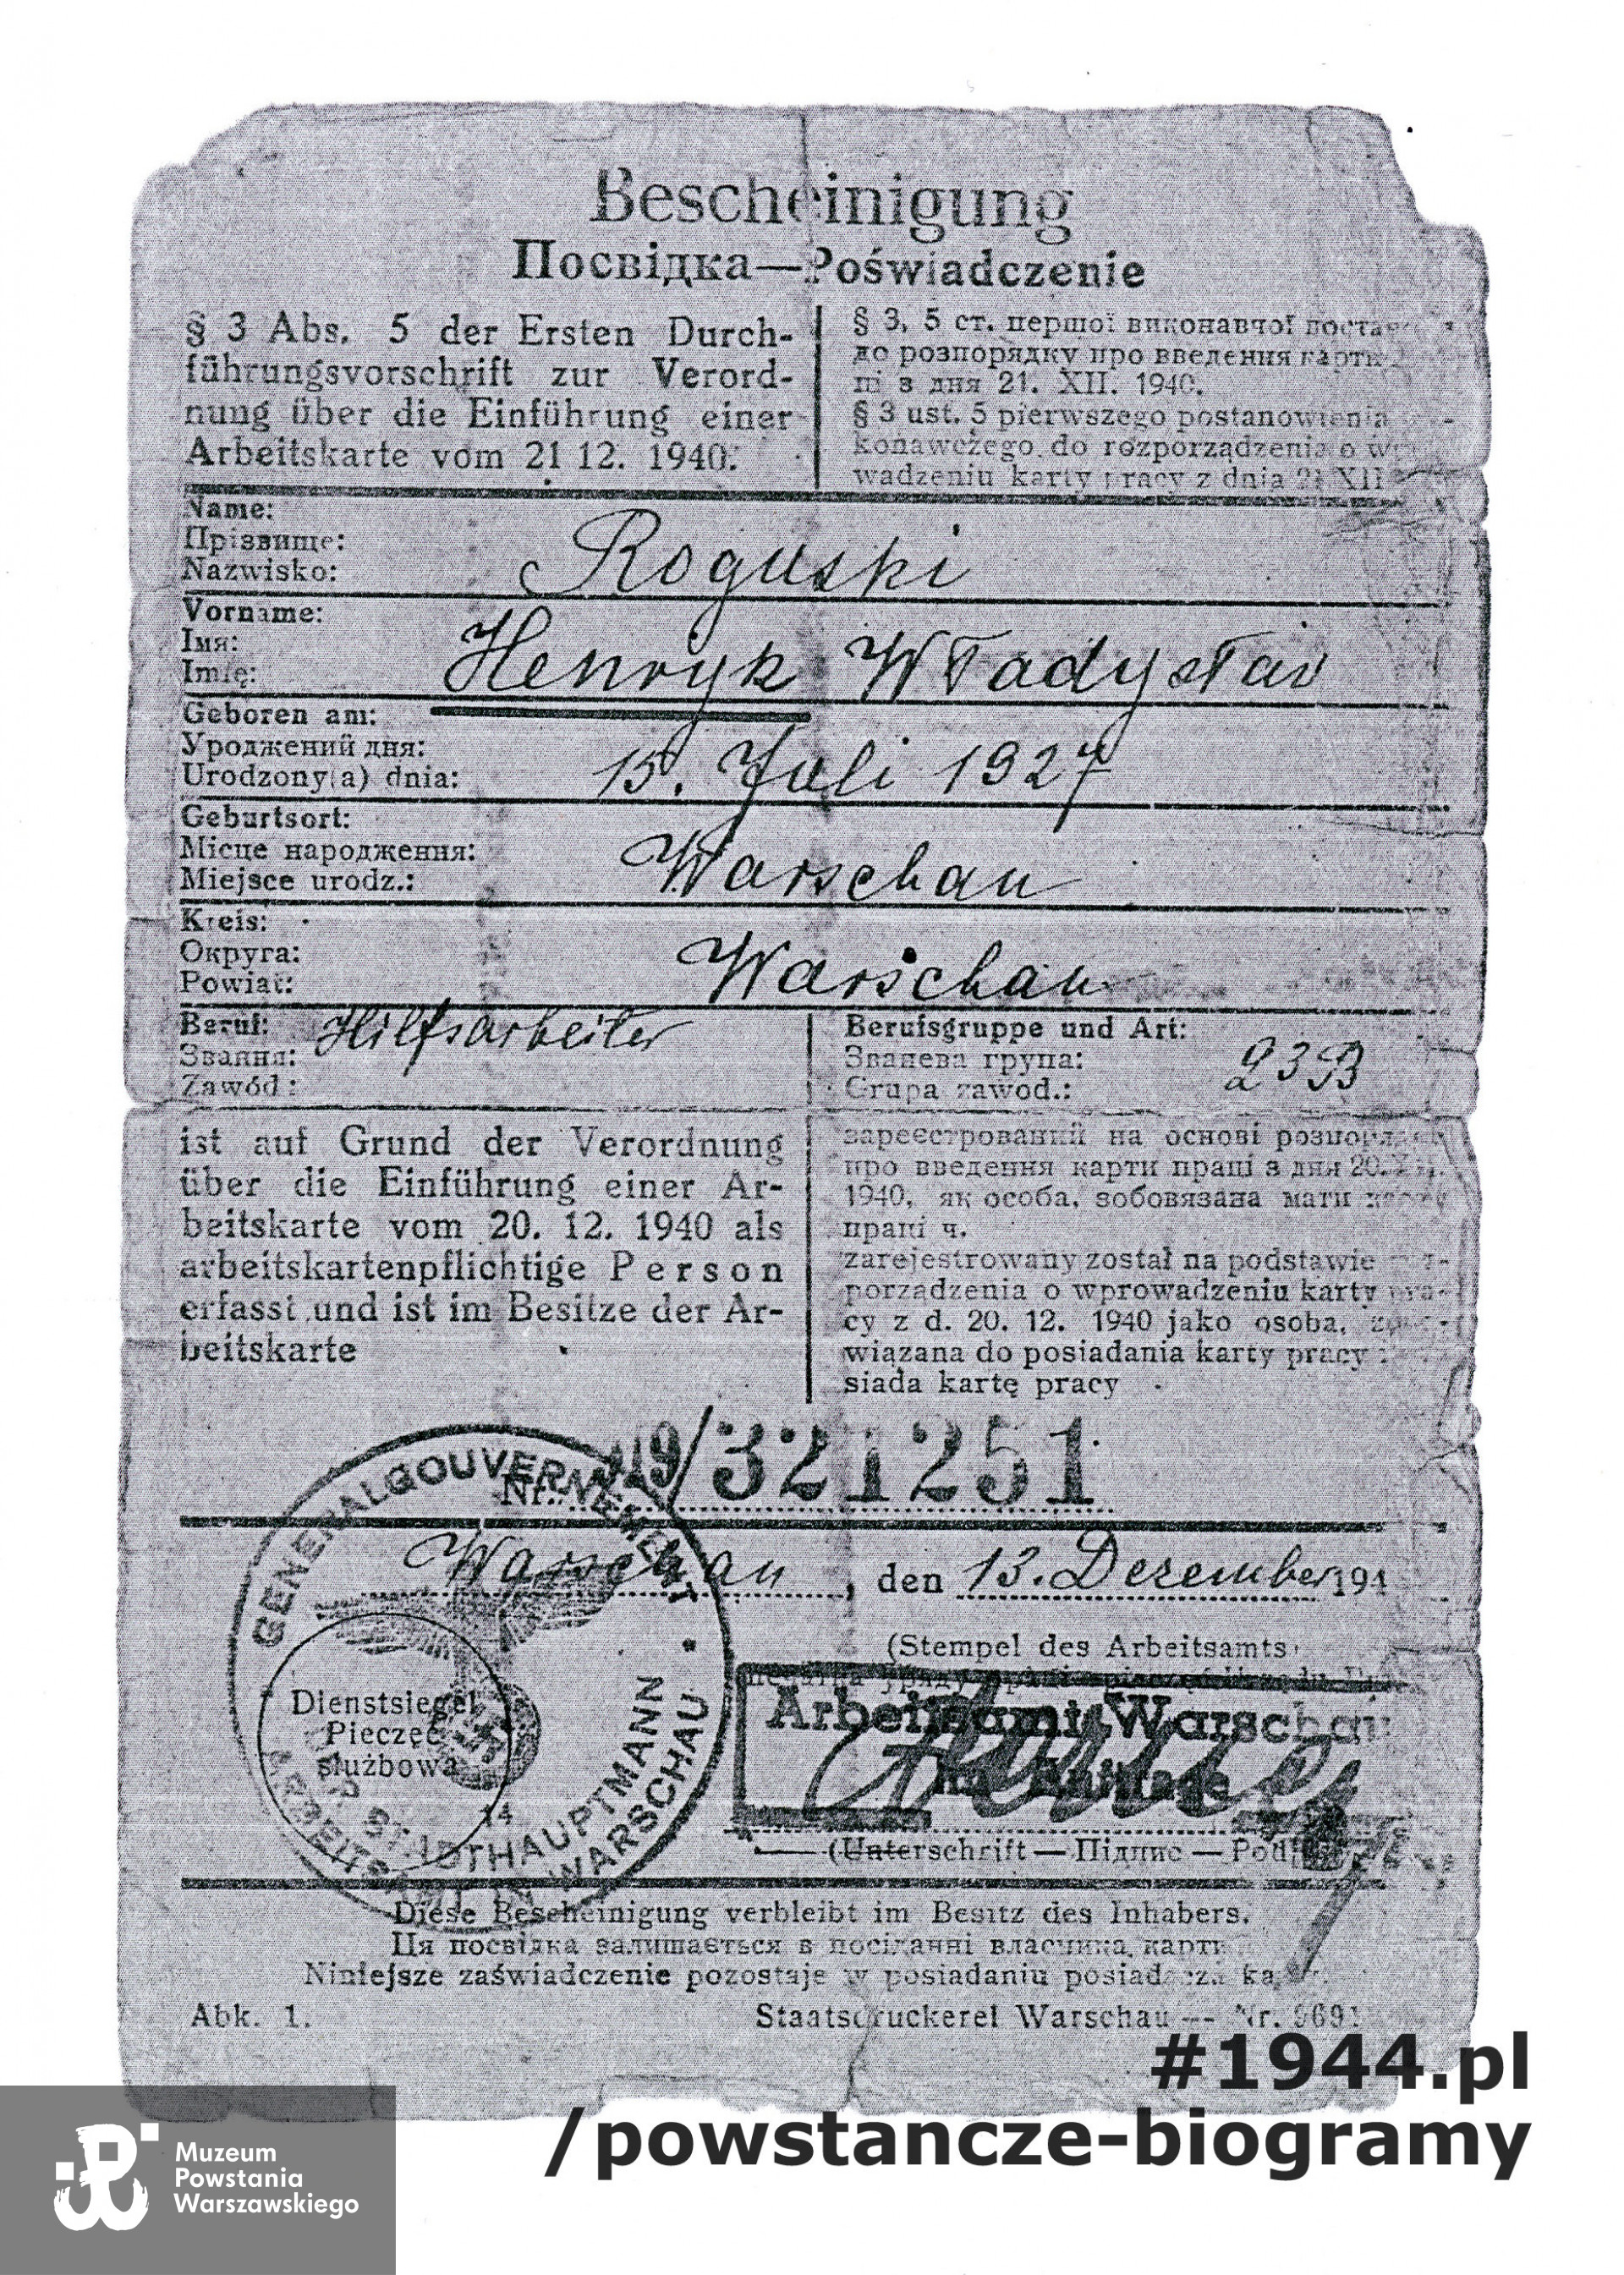 Bescheinigung
Посвідка—Poświadczenie
§ 3 Abs. 5 der Ersten Durch-
führungsvorschrift zur Verord-
nung über die Einführung einer
Arbeitskarte vom 21 12. 1940.
§ 3, 5 ст. першої виконавчої
до розпорядку про введення карти
ці з дня 21. XII. 1940.
§ 3 ust. 5 pierwszego postanowienia
konawczego do rozporządzenia o
wadzeniu karty pracy z dnia 21 XII
Name:
Прізвище:
Nazwisko:
Roguski
Vorname:
Імя:
Imię:
Henryk Władysław
Geboren am:
Уроджений дня:
Urodzony(a) dnia:
15. Juli 1927
Geburtsort:
Місце народження:
Miejsce urodz.:
Warschau
Kreis:
Округа:
Powiat:
Warschau
Beruf:
Звання:
Zawód:
Hilfsarbeiter
Berufsgruppe und Art:
Званева група:
Grupa zawod.:
23B
ist auf Grund der Verordnung
über die Einführung einer Ar-
beitskarte vom 20. 12. 1940 als
arbeitskartenpflichtige Person
erfasst und ist im Besitze der Ar-
beitskarte
зареєстрований на основі
про введення карти праці з дня 20.
1940, як особа, зобовязана мати
праці ч.
zarejestrowany został na podstawie
porządzenia o wprowadzeniu karty
cy z d. 20. 12. 1940 jako osoba,
wiązana do posiadania karty pracy
siada kartę pracy
Nr. 119/321251
Warschau, den 13. Dezember 194
(Stempel des Arbeitsamts
GENERALGOUVERNEMENT
DER STADTHAUPTMANN
ARBEITSAMT WARSCHAU
Dienstsiegel
Pieczęć
służbowa
14
Arbeitsamt Warschau
Im Auftrage
(Unterschrift — Підпис —
Diese Bescheinigung verbleibt im Besitz des Inhabers.
Ця посвідка залишається в посіданні власника карти
Niniejsze zaświadczenie pozostaje w posiadaniu posiadacza
Abk. 1.
Staatsdruckerei Warschau — Nr.
#1944.pl
/powstancze-biogramy
Muzeum
Powstania
Warszawskiego